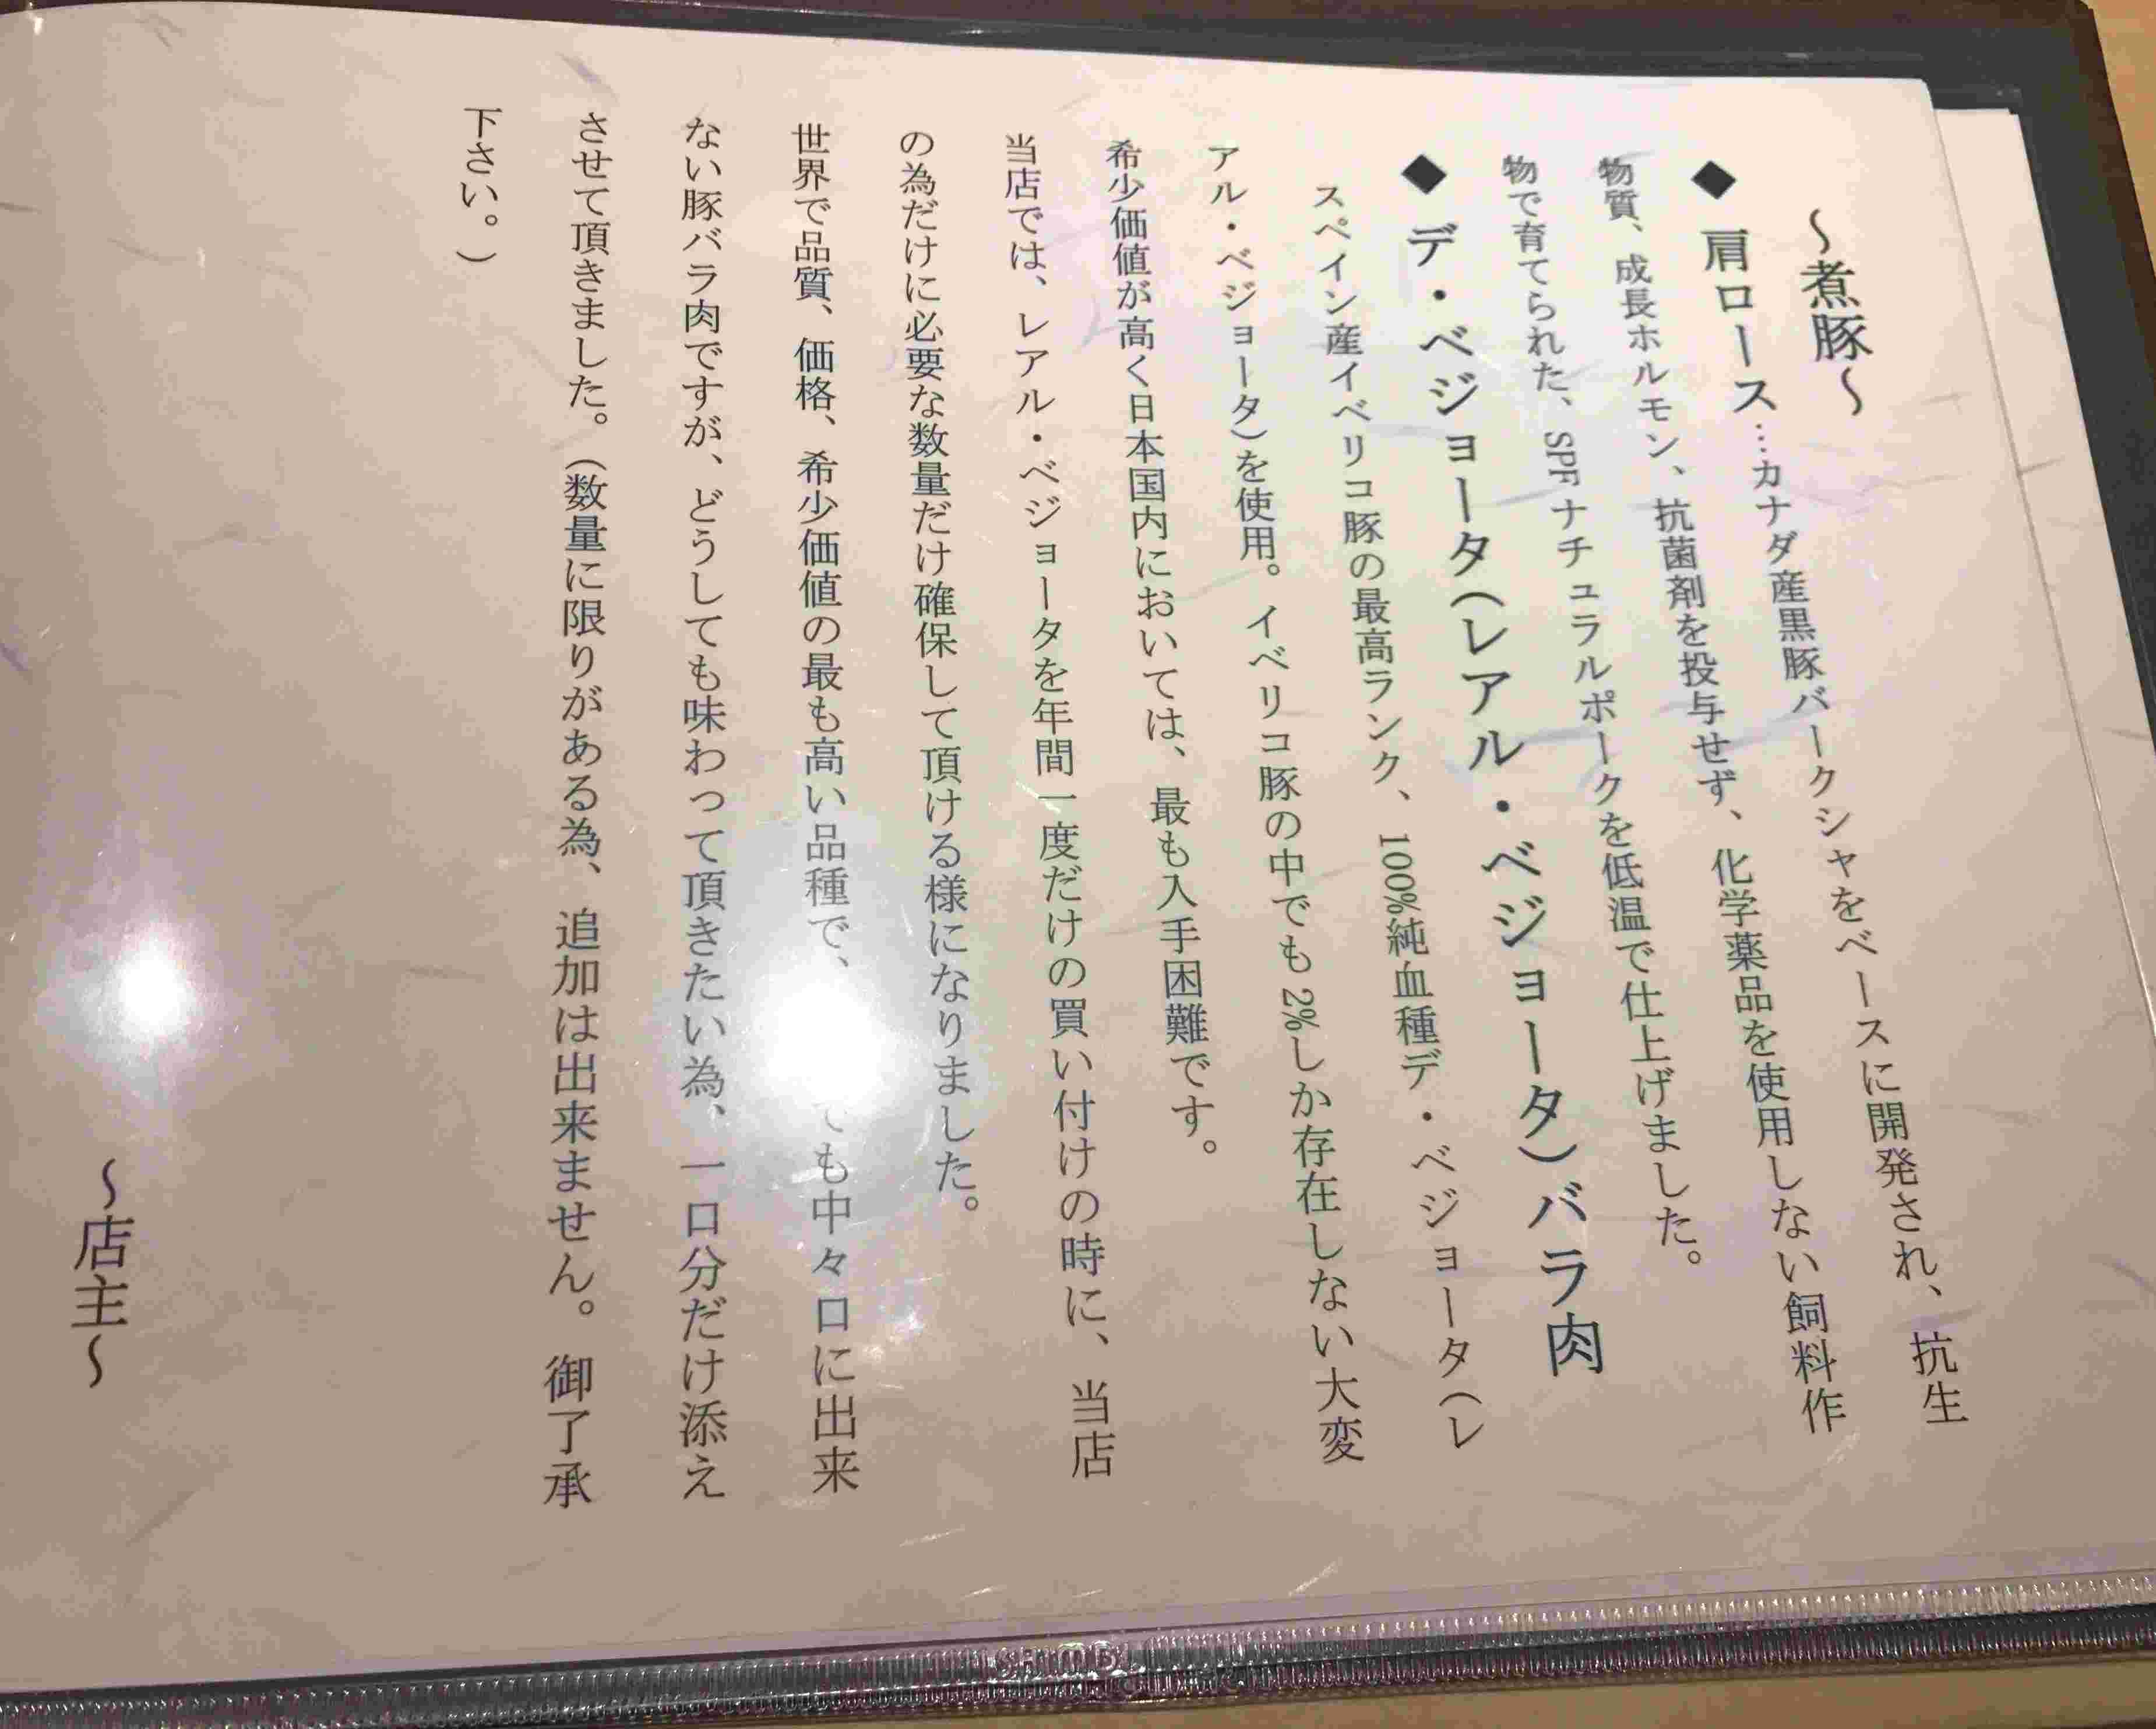 ～煮豚～
◆ 肩ロース…カナダ産黒豚バークシャをベースに開発され、抗生
物質、成長ホルモン、抗菌剤を投与せず、化学薬品を使用しない飼料作
物で育てられた、SPFナチュラルポークを低温で仕上げました。
◆ デ・ベジョータ(レアル・ベジョータ)バラ肉
スペイン産イベリコ豚の最高ランク、100%純血種デ・ベジョータ(レ
アル・ベジョータ)を使用。イベリコ豚の中でも2%しか存在しない大変
希少価値が高く日本国内においては、最も入手困難です。
当店では、レアル・ベジョータを年間一度だけの買い付けの時に、当店
の為だけに必要な数量だけ確保して頂ける様になりました。
世界で品質、価格、希少価値の最も高い品種で、でも中々口に出来
ない豚バラ肉ですが、どうしても味わって頂きたい為、一口分だけ添え
させて頂きました。(数量に限りがある為、追加は出来ません。御了承
下さい。)
～店主～